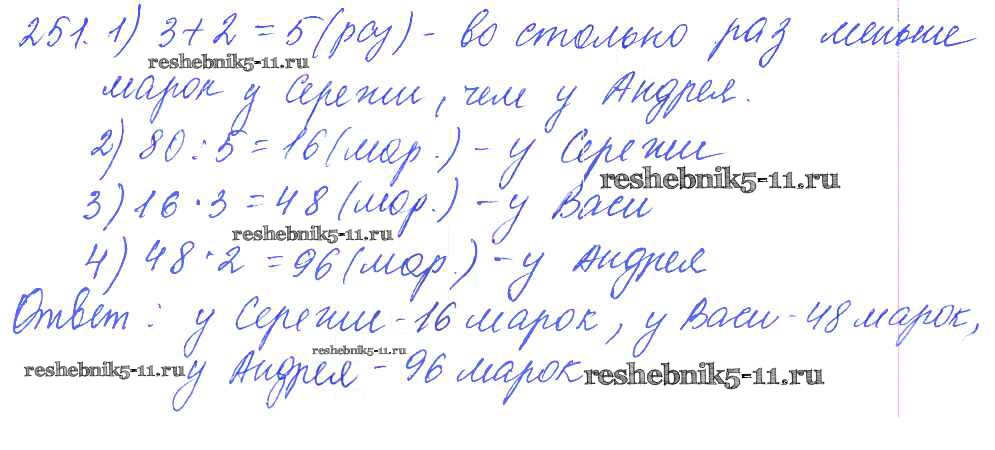 251. 1) 3+2=5(раз) - во столько раз меньше
reshebnik5-11.ru
марок у Сережи, чем у Андрея.
2) 80:5=16(мар.) - у Сережи
reshebnik5-11.ru
3) 16·3=48(мар.) - у Васи
reshebnik5-11.ru
4) 48·2=96(мар.) - у Андрея
Ответ: у Сережи - 16 марок, у Васи - 48 марок,
reshebnik5-11.ru
reshebnik5-11.ru
у Андрея - 96 марок
reshebnik5-11.ru